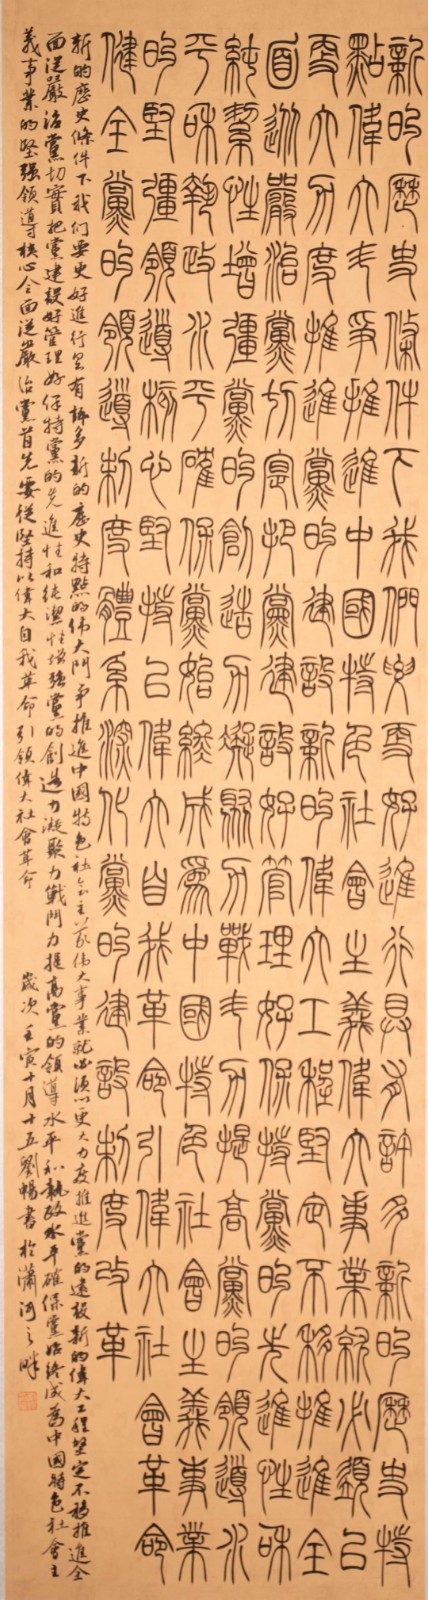 新的歷史條件下我們要更好進行具有許多新的歷史特
點偉大鬥爭推進中國特色社會主義偉大事業就必須以
更大力度推進黨的建設新的偉大工程堅定不移推進全
面從嚴治黨切實把黨建設好管理好保持黨的先進性和
純潔性增彊黨的創造力凝聚力戰鬥力提高黨的領導水
平和執政水平確保黨始終成為中國特色社會主義事業
的堅彊領導核心堅持以偉大自我革命引偉大社會革命
健全黨的領導制度體系深化黨的建設制度改革
新的歷史條件下我们要更好進行具有許多新的歷史特點的伟大鬥争推進中國特色社会主义伟大事業就必须以更大力度推進黨的建設新的偉大工程堅定不移推進全
面從嚴治黨切實把黨建設好管理好保持黨的先進性和純潔性增強黨的創造力凝聚力戰鬥力提高黨的領導水平和執政水平確保黨始終成為中國特色社會主
義事業的堅强領導核心全面從嚴治黨首先要從堅持以偉大自我革命引領偉大社會革命 歲次壬寅十月十五劉暢書於瀟河之畔